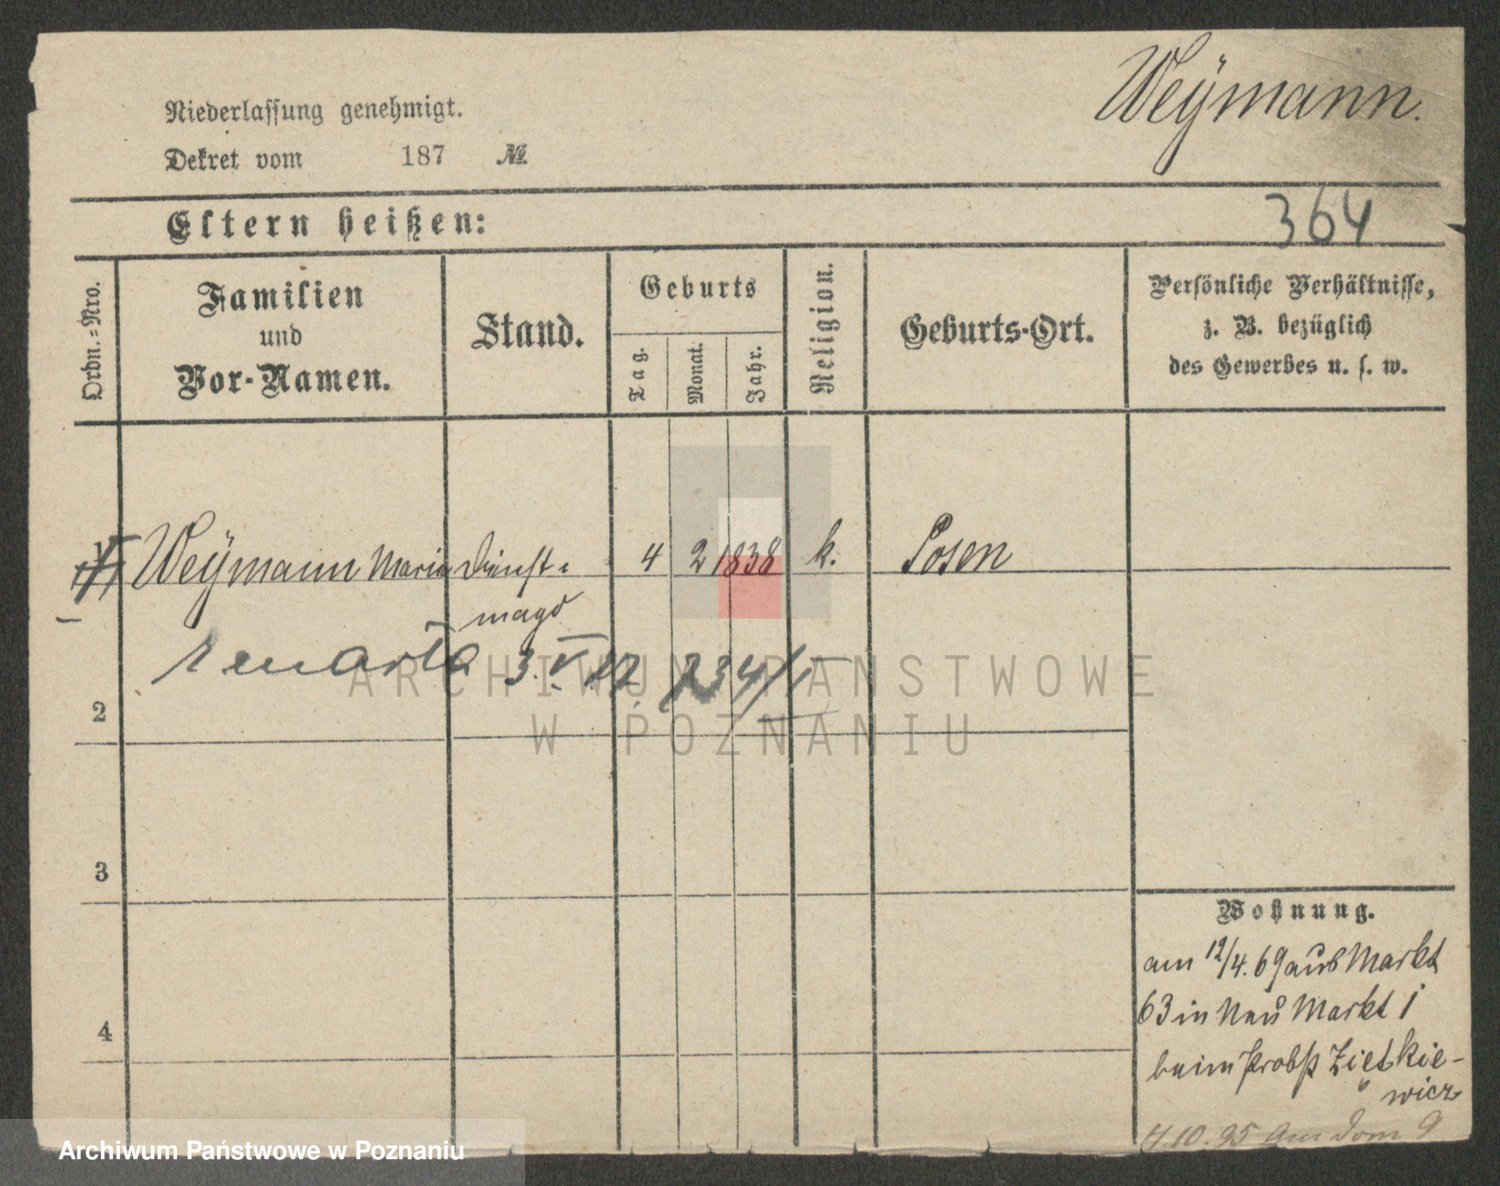 Weÿmann.
Niederlassung genehmigt.
Dekret vom 187 №
Eltern heißen:
364
Ordn.=Nro.
Familien
und
Vor-Namen.
Stand.
Geburts
Tag.
Monat.
Jahr.
Religion.
Geburts-Ort.
Persönliche Verhältnisse,
z. B. bezüglich
des Gewerbes u. s. w.
1 Weÿmann Maria Dienst-
magd
4 2 1838 k. Posen
zmarła 3. V 17. 234/
2
3
4
Wohnung.
am 12/4. 69 aus Markt
63 in Neu Markt 1
beim Probst Ziętkie-
wicz
4.10.95 Am Dom 9
ARCHIWUM PAŃSTWOWE
W POZNANIU
Archiwum Państwowe w Poznaniu